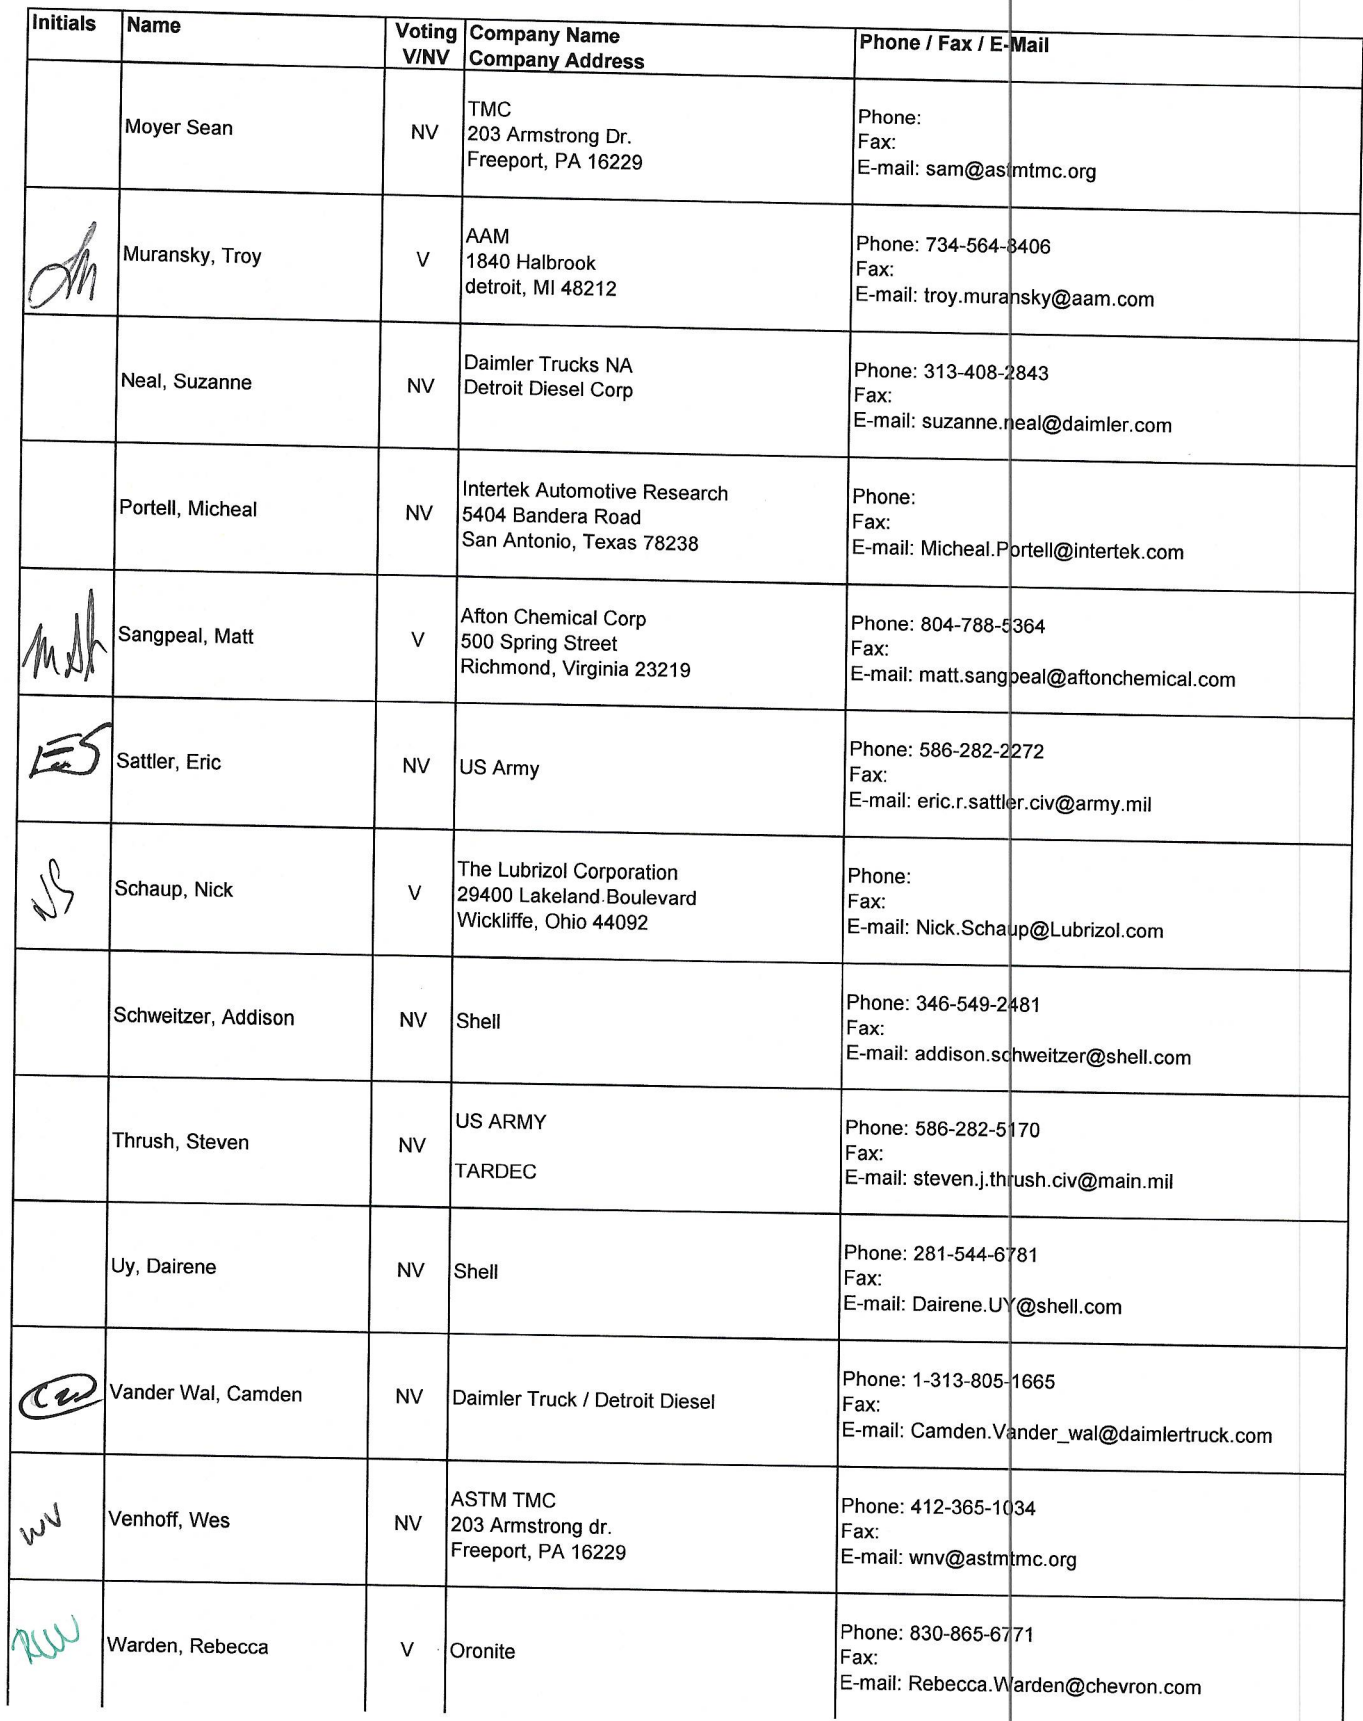 Initials Name Voting Company Name Phone / Fax / E-Mail
V/NV Company Address
Moyer Sean NV TMC
203 Armstrong Dr.
Freeport, PA 16229
Phone:
Fax:
E-mail: sam@astmtmc.org
Muransky, Troy V AAM
1840 Halbrook
detroit, MI 48212
Phone: 734-564-8406
Fax:
E-mail: troy.muransky@aam.com
Neal, Suzanne NV Daimler Trucks NA
Detroit Diesel Corp
Phone: 313-408-2843
Fax:
E-mail: suzanne.neal@daimler.com
Portell, Micheal NV Intertek Automotive Research
5404 Bandera Road
San Antonio, Texas 78238
Phone:
Fax:
E-mail: Micheal.Portell@intertek.com
Sangpeal, Matt V Afton Chemical Corp
500 Spring Street
Richmond, Virginia 23219
Phone: 804-788-5364
Fax:
E-mail: matt.sangpeal@aftonchemical.com
ES Sattler, Eric NV US Army
Phone: 586-282-2272
Fax:
E-mail: eric.r.sattler.civ@army.mil
NS Schaup, Nick V The Lubrizol Corporation
29400 Lakeland Boulevard
Wickliffe, Ohio 44092
Phone:
Fax:
E-mail: Nick.Schaup@Lubrizol.com
Schweitzer, Addison NV Shell
Phone: 346-549-2481
Fax:
E-mail: addison.schweitzer@shell.com
Thrush, Steven NV US ARMY
TARDEC
Phone: 586-282-5170
Fax:
E-mail: steven.j.thrush.civ@main.mil
Uy, Dairene NV Shell
Phone: 281-544-6781
Fax:
E-mail: Dairene.UY@shell.com
Vander Wal, Camden NV Daimler Truck / Detroit Diesel
Phone: 1-313-805-1665
Fax:
E-mail: Camden.Vander_wal@daimlertruck.com
WV Venhoff, Wes NV ASTM TMC
203 Armstrong dr.
Freeport, PA 16229
Phone: 412-365-1034
Fax:
E-mail: wnv@astmtmc.org
Warden, Rebecca V Oronite
Phone: 830-865-6771
Fax:
E-mail: Rebecca.Warden@chevron.com